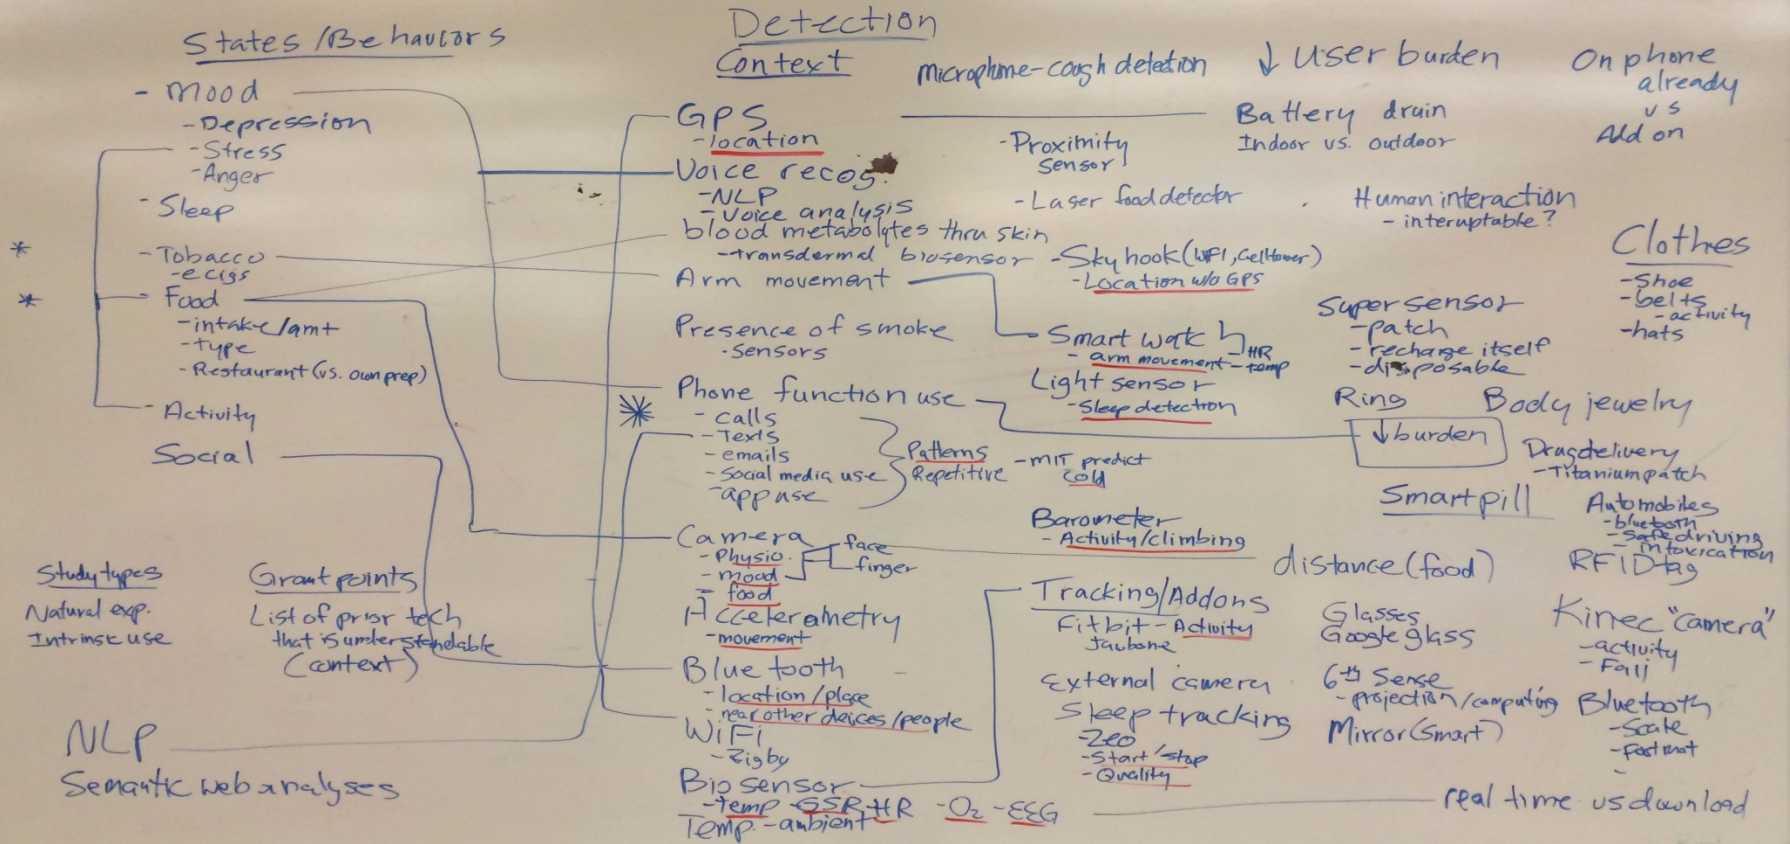 States/Behaviors
- Mood
- Depression
- Stress
- Anger
- Sleep
* - Tobacco
- ecigs
* - Food
- intake/amt
- type
- Restaurant (vs. own prep)
- Activity
Social
Study types
Natural exp.
Intrinsic use
Grant points
List of prior tech
that is understandable
(context)
NLP
Semantic web analyses
Detection
Context
microphone-cough detection
GPS
- location
Voice recog.
- NLP
- Voice analysis
blood metabolytes thru skin
- transdermal biosensor
Arm movement
Presence of smoke
- Sensors
Phone function use
- calls
- Texts
- emails
- Social media use
- app use
Patterns
Repetitive
- MIT predict
cold
Camera
- Physio.
- mood
- food
face
finger
Accelerometry
- movement
Blue tooth
- location/place
- near other devices/people
WiFi
- Zigby
Bio sensor
- temp - GSR - HR - O2 - EEG
Temp. - ambient
- Proximity
Sensor
- Laser food detector
- Skyhook (WIFI, Cell tower)
- Location w/o GPS
Smart watch
- arm movement - HR
- temp
Light sensor
- Sleep detection
Barometer
- Activity/climbing
Tracking/Addons
Fitbit - Activity
Jawbone
External camera
Sleep tracking
- Zeo
- Start/stop
- Quality
↓ User burden
Battery drain
Indoor vs. outdoor
On phone
already
vs
Add on
Human interaction
- interuptable?
Clothes
- Shoe
- belts
- activity
- hats
Super sensor
- patch
- recharge itself
- disposable
Ring
Body jewelry
↓ burden
Drug delivery
- Titanium patch
Smart pill
Automobiles
- bluetooth
- Safe driving
- intoxication
RFID tag
distance (food)
Glasses
Google glass
6th Sense
- projection/computing
Mirror (Smart)
Kinec "camera"
- activity
- Fall
Bluetooth
- Scale
- foot mat
real time vs download